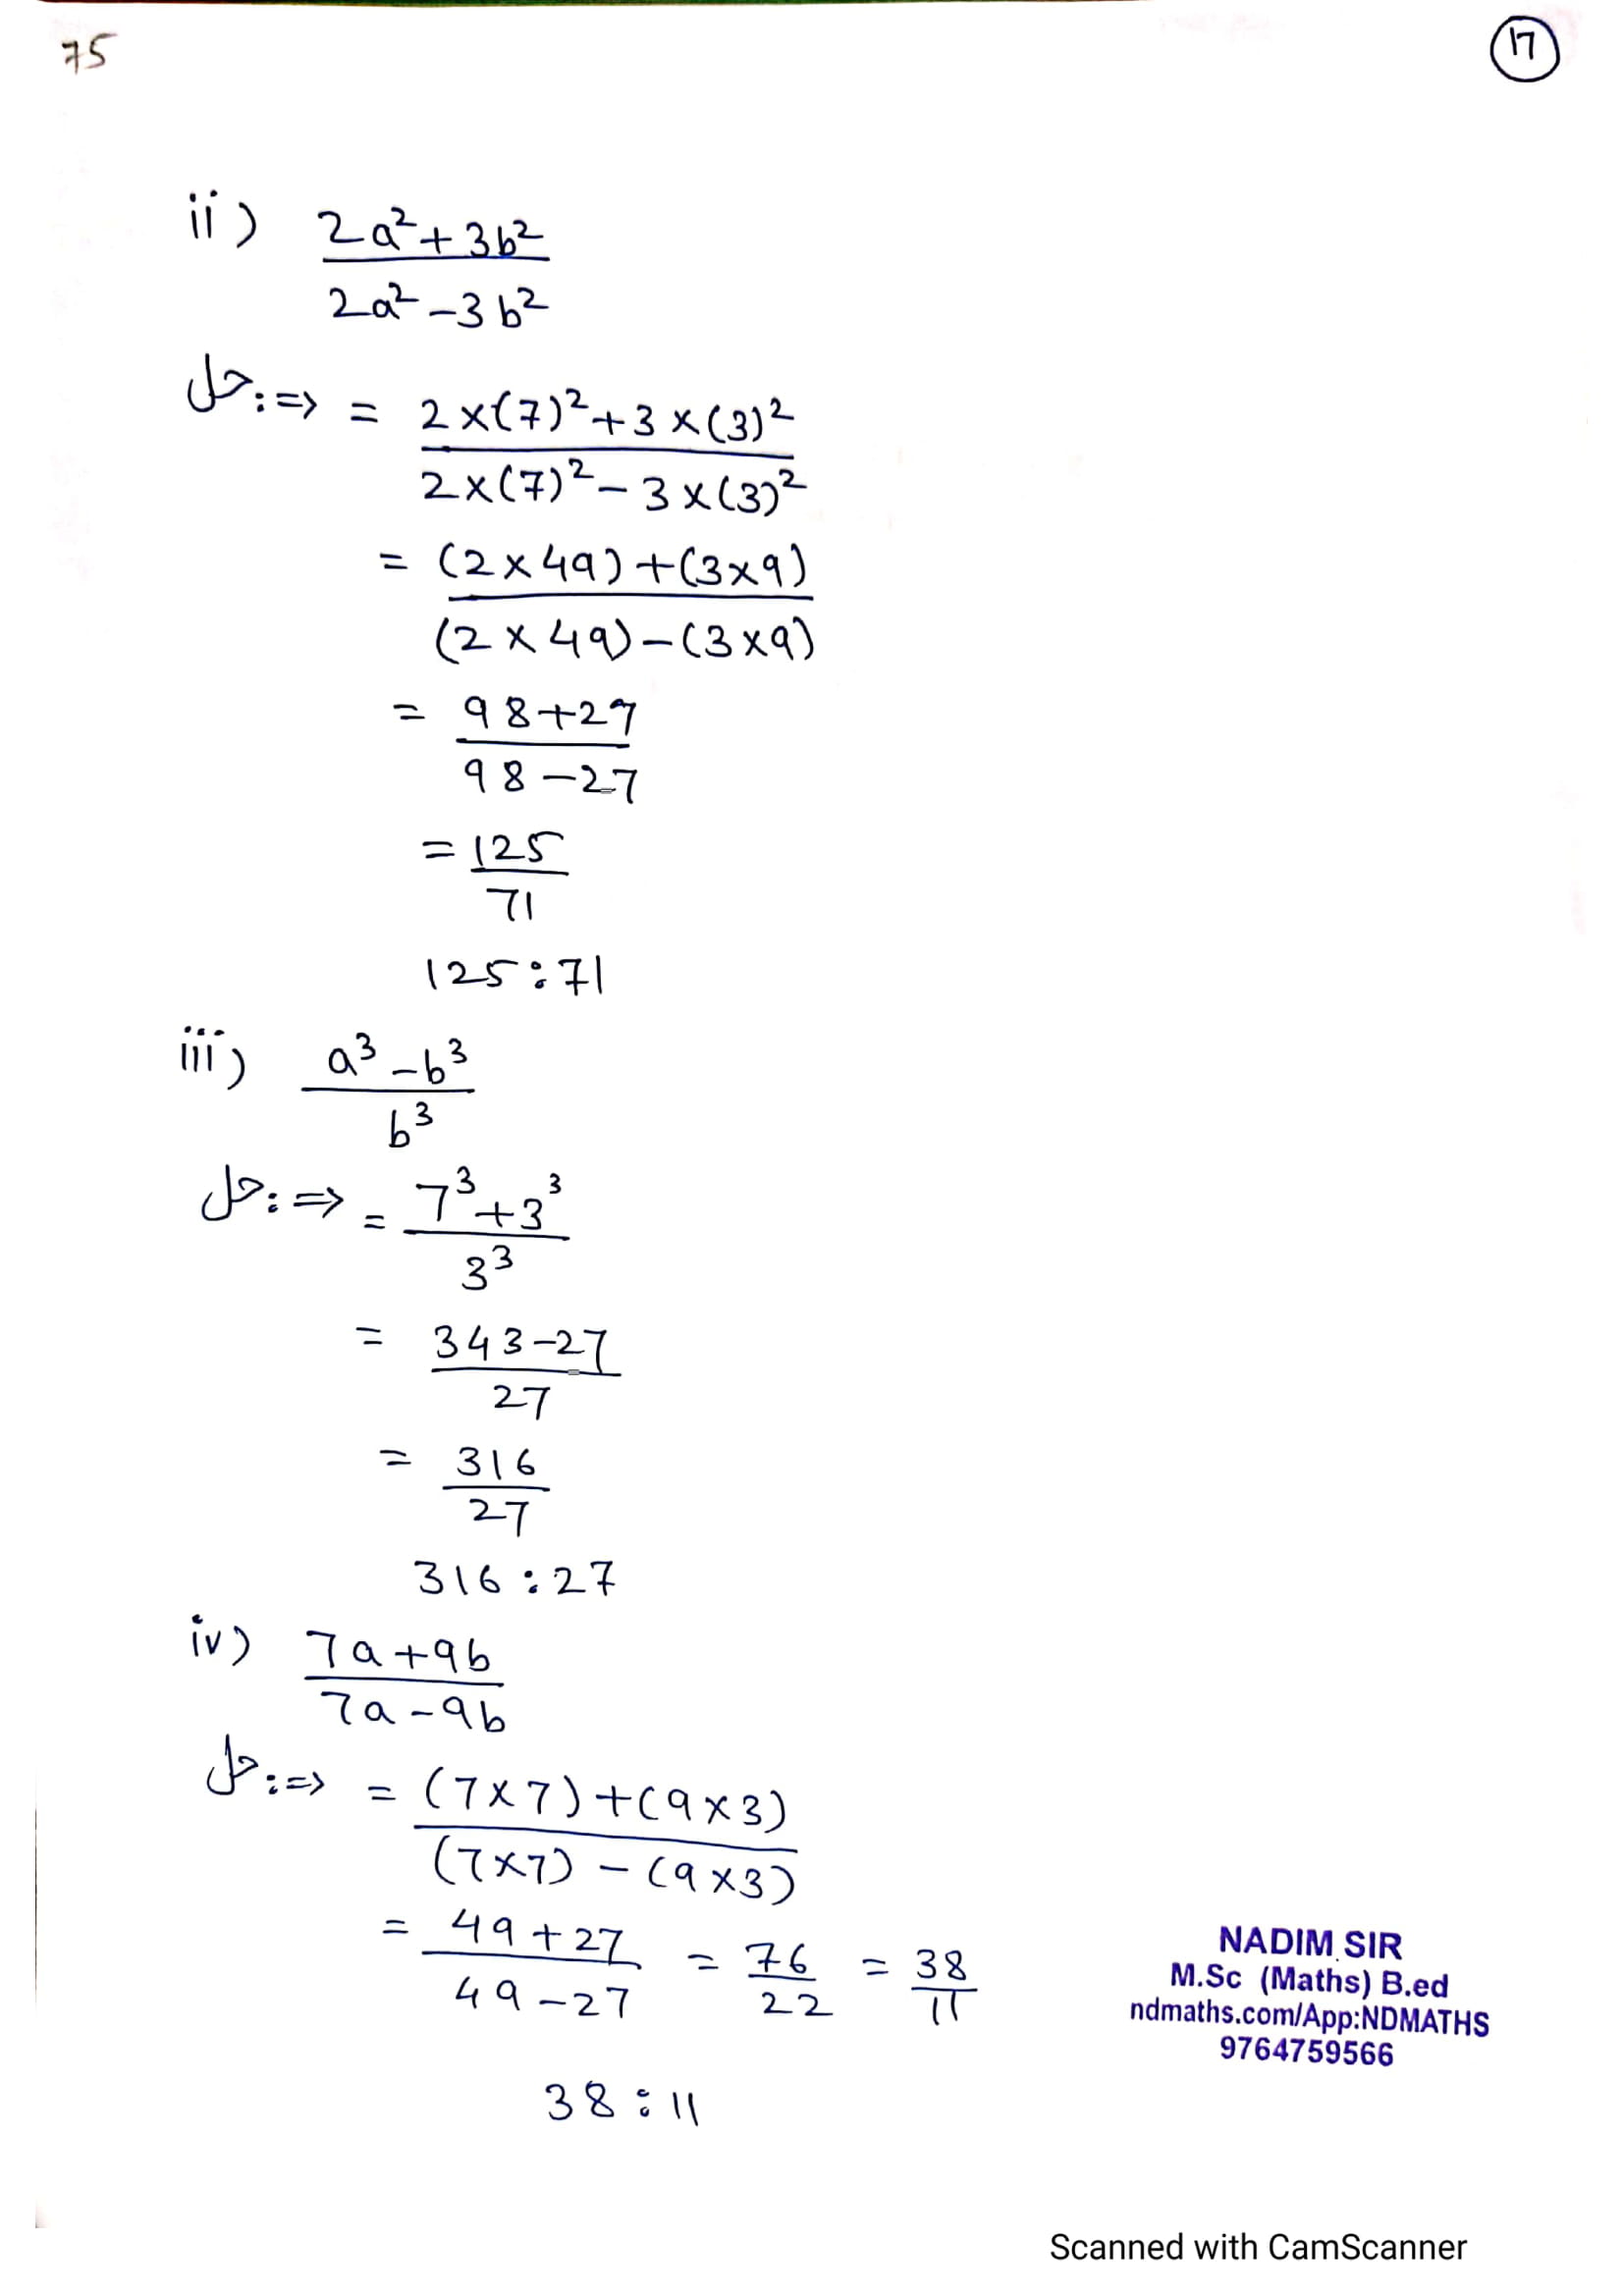 75
17
ii) 2a²+3b²
2a²-3b²
حل:=> = 2×(7)²+3×(3)²
2×(7)²-3×(3)²
= (2×49)+(3×9)
(2×49)-(3×9)
= 98+27
98-27
= 125
71
125:71
iii) a³-b³
b³
حل:=> = 7³+3³
3³
= 343-27
27
= 316
27
316:27
iv) 7a+9b
7a-9b
حل:=> = (7×7)+(9×3)
(7×7)-(9×3)
= 49+27 = 76 = 38
49-27 22 11
38:11
NADIM SIR
M.Sc (Maths) B.ed
ndmaths.com/App:NDMATHS
9764759566
Scanned with CamScanner